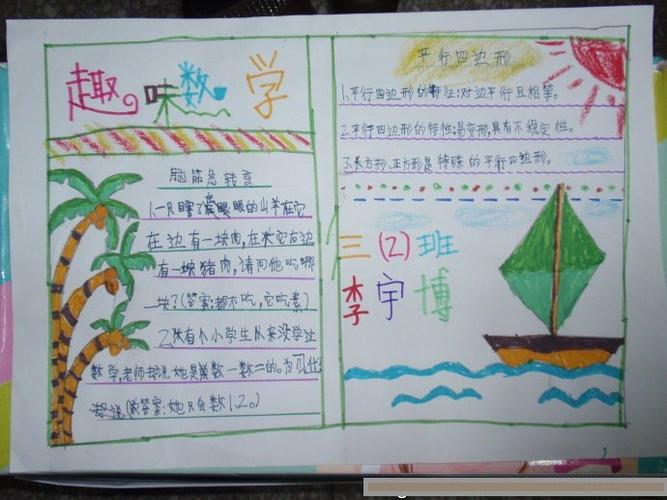 趣味数学
脑筋急转变
1.一只瞎了眼的山羊在它
在边有一块肉,在米它右边
有一块猪肉,请问他吃哪
块?(答案:都不吃,它吃素)
2.有个小学生从来没学过
数学,老师却说她是数一数二的。为什
(答案:她只会数1.2。)
平行四边形
1.平行四边形的特征:对边平行且相等。
2.平行四边形的特性:易变形,具有不稳定性。
3.长方形,正方形是特殊的平行四边形。
三(2)班
李宇博